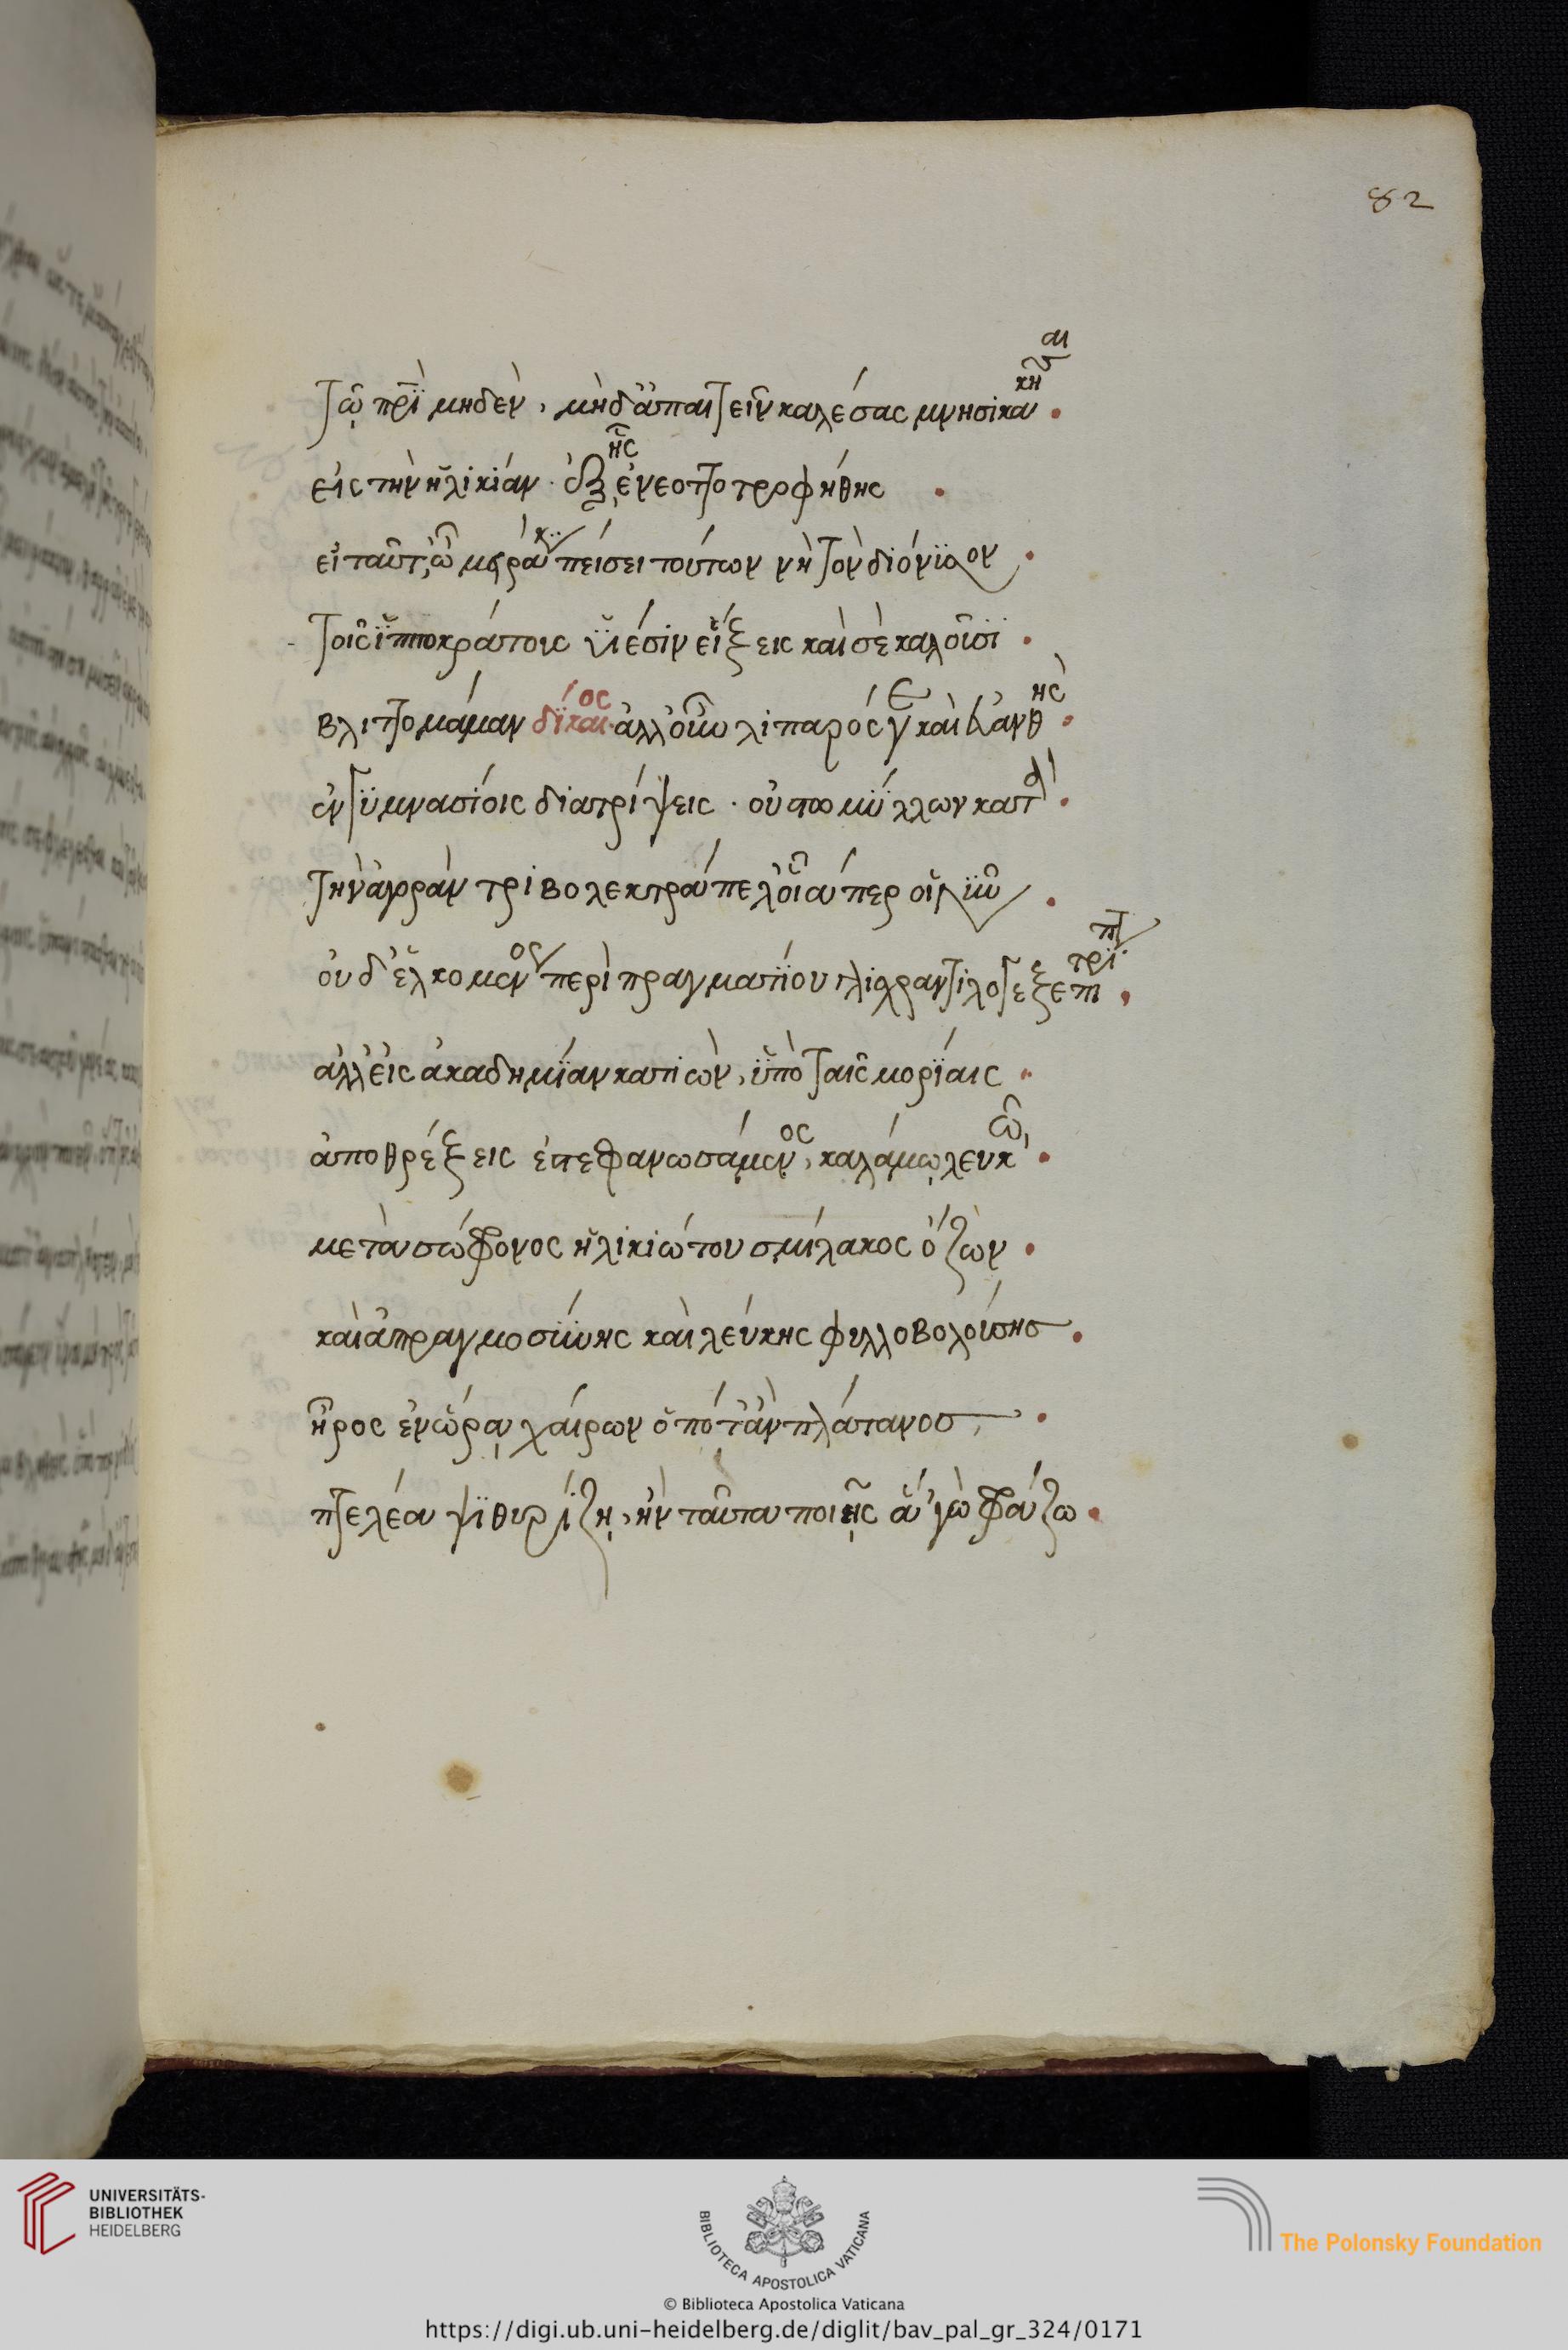 82
τῷ πρῒ μηδὲν, μὴδ ἀπαιτεῖν καλέσας μνησικακῆσαι.
εἰς τὴν ἡλικίαν. ἐξ ἧς ἐνεοττοτροφήθης.
εἰ ταῦτ, ὦ μειράκ.. πείσει τούτω νὴ τὸν διόνϊσον.
τοῖς ἵπποκράτους ϋἱέσιν εἴξεις καὶ σὲ καλοῖσϊ.
βλιττομάμαν δίκαιος. ἀλλοὖν λιπαρός γε καὶ εὐανθὴς.
ἐν γϋμνασίοις διατρίψεις. οὐ στωμΰλλων κατά.
τὴν ἀγορὰν τριβολεκτράπελ οἷά περ οἱ νῦν.
οὐδ' ἑλκόμενος περὶ πραγματίου γλισχραντιλογεξεπιτρίπτ.
ἀλλ εἰς ἀκαδημίαν κατιὼν, ὑπὸ ταῖς μορίαις.
ἀποθρέξεις στεφανωσάμενος, καλάμῳ λευκῶ,.
μετα σώφρονος ἡλικιώτου σμίλακος ὄζων.
καὶ ἀπραγμοσύνης καὶ λεύκης φυλλοβολούσης.
ἦρος ἐν ὥρᾳ χαίρων ὁπόταν πλάτανος.
πτελέα ψϊθυρίζῃ, ἢν ταῦτα ποιῇς ἃ 'γὼ φράζω.
UNIVERSITÄTS-
BIBLIOTHEK
HEIDELBERG
BIBLIOTECA APOSTOLICA VATICANA
The Polonsky Foundation
© Biblioteca Apostolica Vaticana
https://digi.ub.uni-heidelberg.de/diglit/bav_pal_gr_324/0171